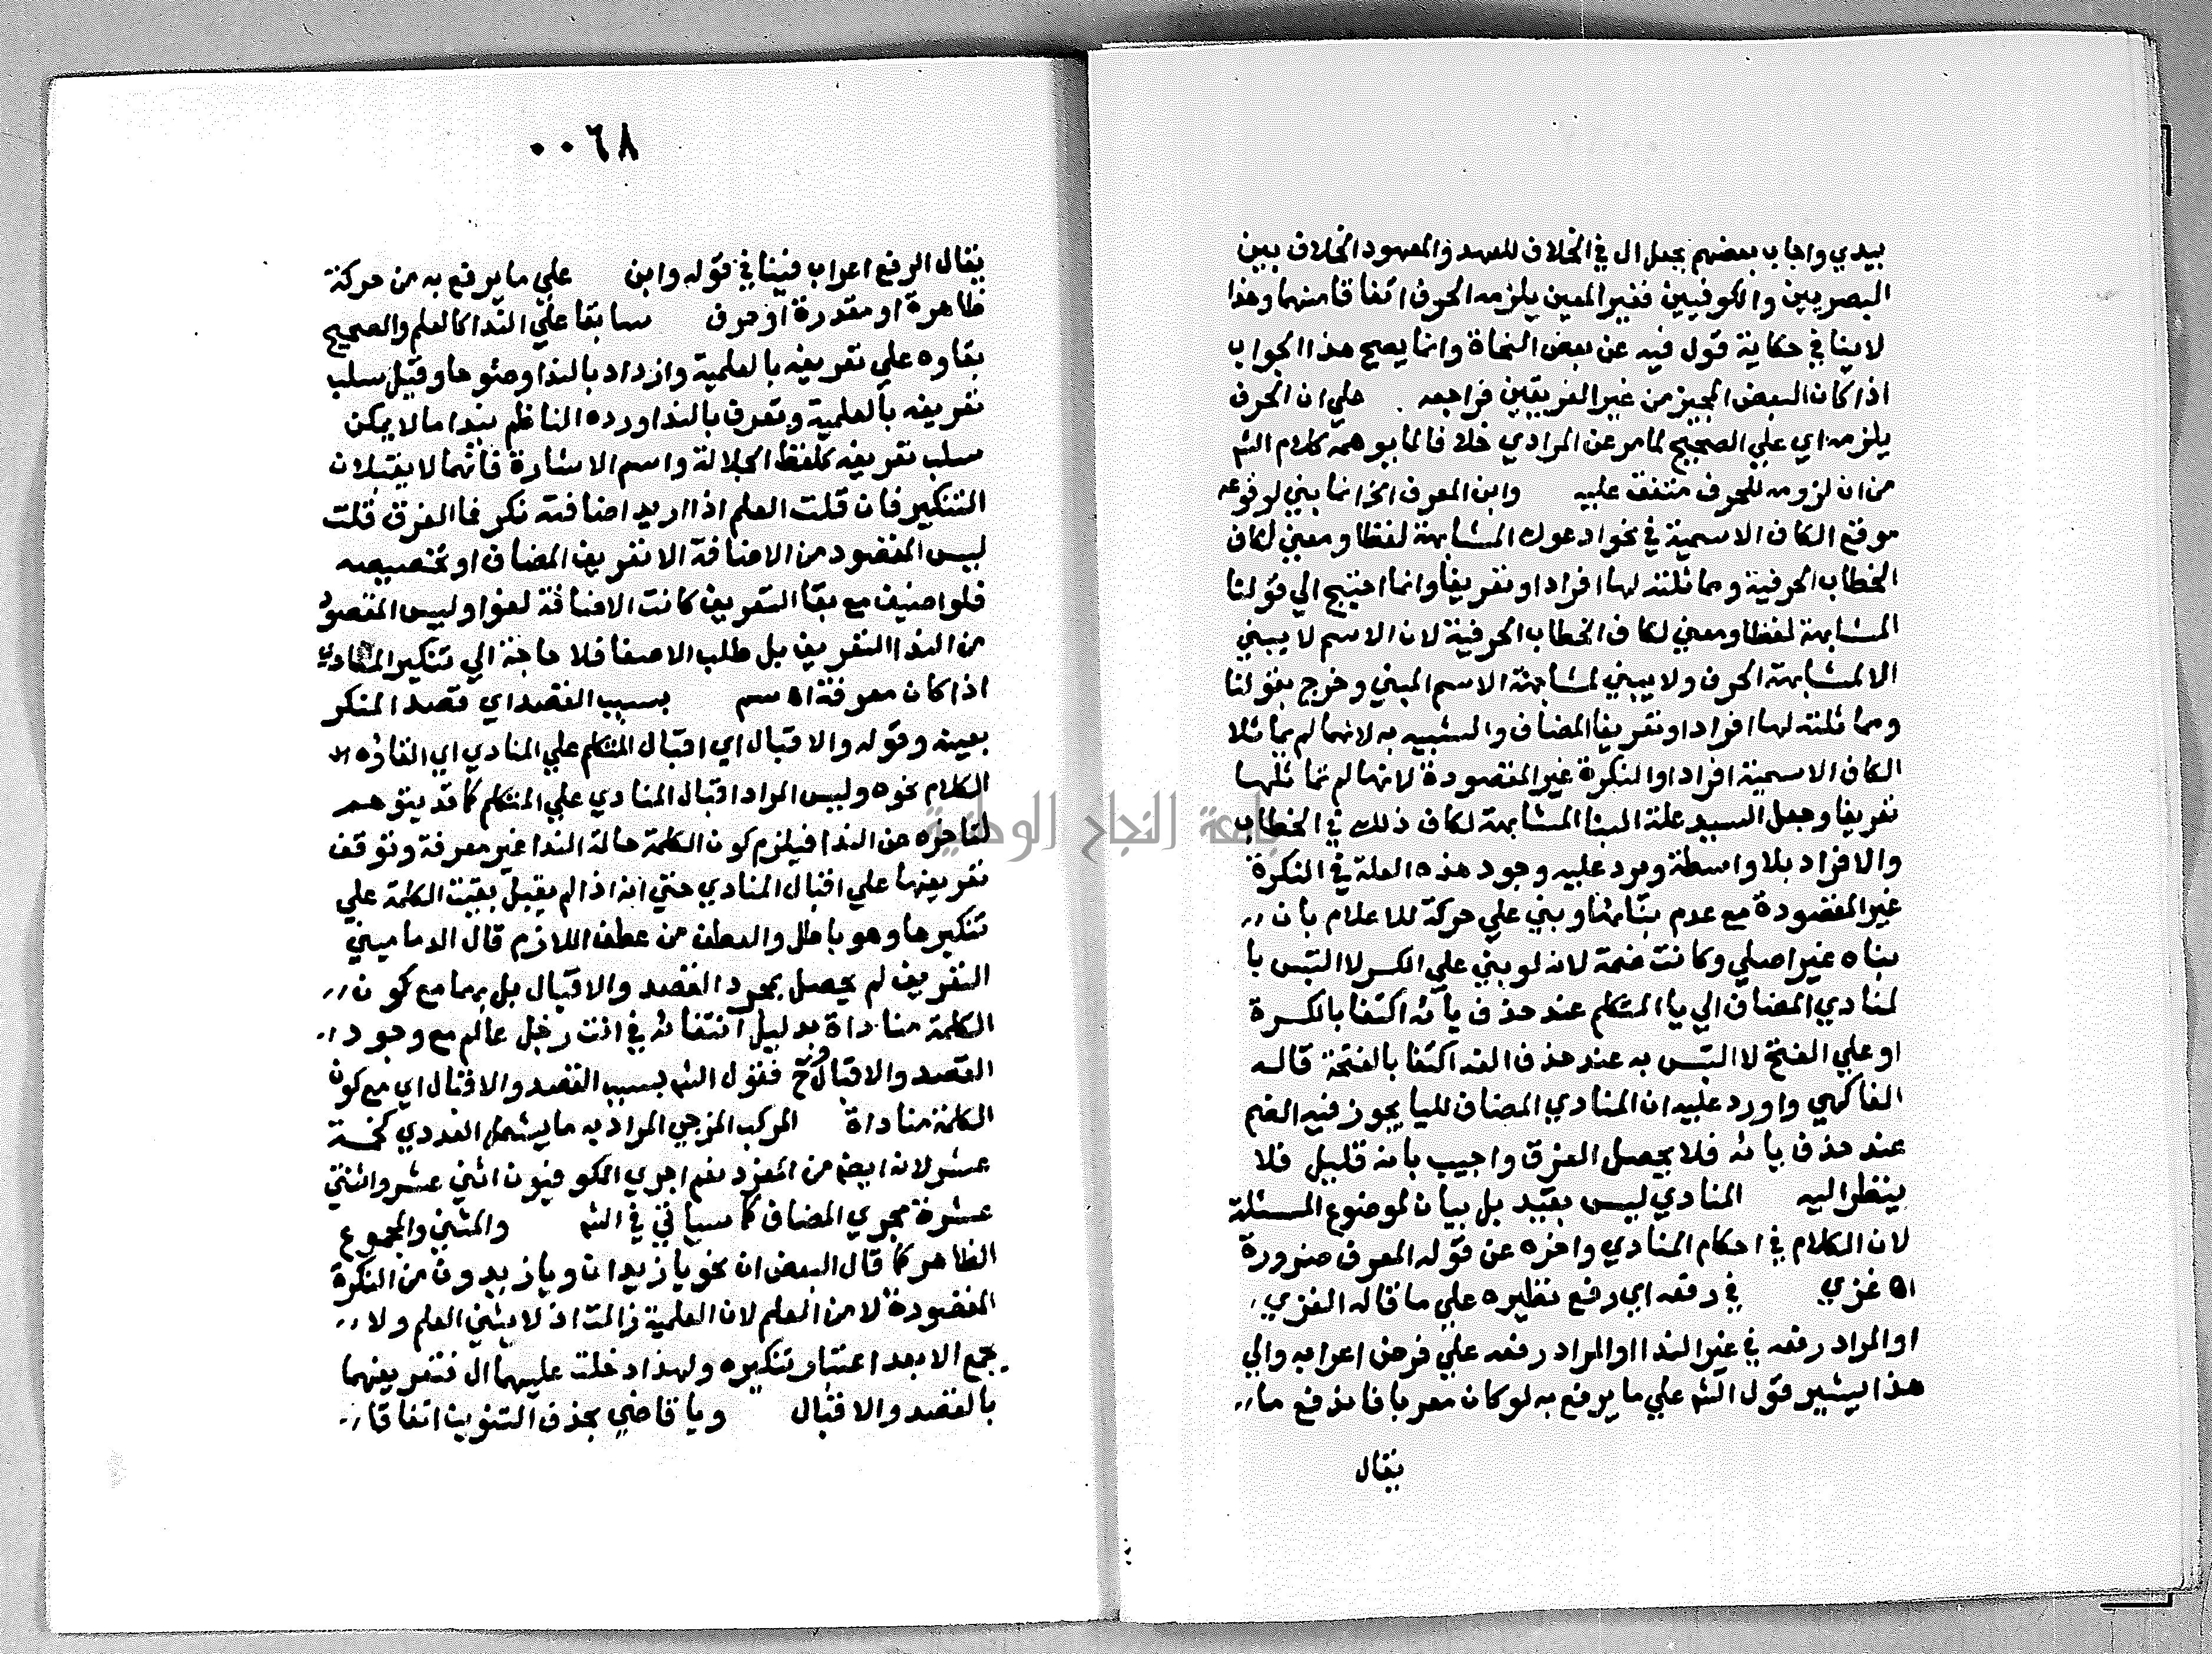 بيدي واجاب بعضهم بجعل ال في الخلاف للعهد والمعهود الخلاف بين
البصريين والكوفيين فغير المعين يلزمه الحرف اتفاقا منهما وهذا
لا ينافي حكاية قول فيه عن بعض النحاة وانما يصح هذا الجواب
اذا كان البعض المجيز من غير الفريقين فراجعه علي ان الحرف
يلزمه اي علي الصحيح لما مر عن المرادي خلافا لما يوهمه كلام الش
من ان لزومه للحرف متفق عليه وابن المعرف الخ انما بني لوقوعه
موقع الكاف الاسمية في نحو ادعوك المشابهة لفظا ومعني لكاف
الخطاب الحرفية ومماثلته لها افرادا وتعريفا وانما احتيج الي قولنا
المشابهة لفظا ومعني لكاف الخطاب الحرفية لان الاسم لا يبني
الا لمشابهة الحرف ولا يبني لمشابهة الاسم المبني وخرج بقولنا
ومماثلته لها افرادا وتعريفا المضاف والشبيه به لانهما لم يماثلا
الكاف الاسمية افرادا والنكرة غير المقصودة لانها لم تماثلها
تعريفا وجعل السيد علة البنا المشابهة لكاف ذلك في الخطاب
والافراد بلا واسطة ويرد عليه وجود هذه العلة في النكرة
غير المقصودة مع عدم بنائها وبني علي حركة للاعلام بان
بناه غير اصلي وكانت ضمة لانه لو بني علي الكسر لا التبس با
لمنادي المضاف الي يا المتكلم عند حذف يائه اكتفا بالكسرة
او علي الفتح لا التبس به عند حذف الفه اكتفا بالفتحة قاله
الفاكهي واورد عليه ان المنادي المضاف لليا يجوز فيه الضم
عند حذف يائه فلا يحصل الفرق واجيب بانه قليل فلا
ينظر اليه المنادي ليس بقيد بل بيان لموضوع المسئلة
لان الكلام في احكام المنادي واخره عن قوله المعرف ضرورة
اه غزي في رفعه اي رفع نظيره علي ما قاله الغزي
او المراد رفعه في غير الندا او المراد رفعه علي فرض اعرابه والي
هذا يشير قول الش علي ما يرفع به لو كان معربا فاندفع ما
يقال
٠٠٦٨
يقال الرفع اعراب فينافي قوله وابن علي ما يرفع به من حركة
ظاهرة او مقدرة او حرف سابقا علي الندا كالعلم والصحيح
بقاوه علي تعريفه بالعلمية وازداد بالندا وضوحا وقيل سلب
تعريفه بالعلمية وتعرف بالندا ورده الناظم بندا ما لا يمكن
سلب تعريفه كلفظ الجلالة واسم الاشارة فانهما لا يقبلان
التنكير فان قلت العلم اذا اريد اضافته نكر فما الفرق قلت
ليس المقصود من الاضافة الا تعريف المضاف او تخصيصه
فلو اضيف مع بقا التعريف كانت الاضافة لغوا وليس المقصود
من الندا التعريف بل طلب الاصغا فلا حاجة الي تنكير المنادي
اذا كان معرفة اه سم بسبب القصد اي قصد المنكر
بعينه وقوله والاقبال اي اقبال المتكلم علي المنادي اي القاؤه
الكلام نحوه وليس المراد اقبال المنادي علي المتكلم كما قد يتوهم
لتاخره عن الندا فيلزم كون الكلمة حالة الندا غير معرفة وتوقف
تعريفها علي اقبال المنادي حتي انه اذا لم يقبل بقيت الكلمة علي
تنكيرها وهو باطل والعطف من عطف اللازم قال الدماميني
التعريف لم يحصل بمجرد القصد والاقبال بل بهما مع كون
الكلمة مناداة بدليل انتفائه في انت رجل عالم مع وجود
القصد والاقبال وح فقول الش بسبب القصد والاقبال اي مع كون
الكلمة مناداة المركب المزجي المراد به ما يشمل العددي كخمسة
عشر لانه ايضم من المفرد نعم اجري الكوفيون اثني عشر واثنتي
عشرة مجري المضاف كما سياتي في الش والمثني والمجموع
الظاهر كما قال البعض ان نحو يا زيدان ويا زيدون من النكرة
المقصودة لا من العلم لان العلمية زالت اذ لا يثني العلم ولا
يجمع الا بعد اعتبار تنكيره ولهذا دخلت عليهما ال فتعريفهما
بالقصد والاقبال ويا قاضي بحذف التنوين اتفاقا
جامعة النجاح الوطنية